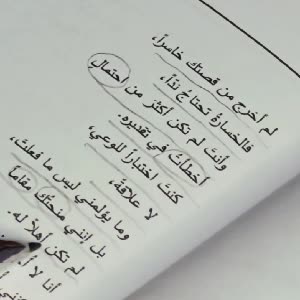 لم أخرج من قصتك خاسراً،
فالخسارة تحتاجُ نِدّاً،
وأنتَ لم تكن أكثر من احتمالٍ
أخطأتُ في تقديره.
كنتَ اختباراً للوعي،
لا علاقة،
وما يؤلمني ليس ما فعلتَ،
بل إنني منحتُكَ مقاماً
لم تكن أهلاً له.
أنا لا